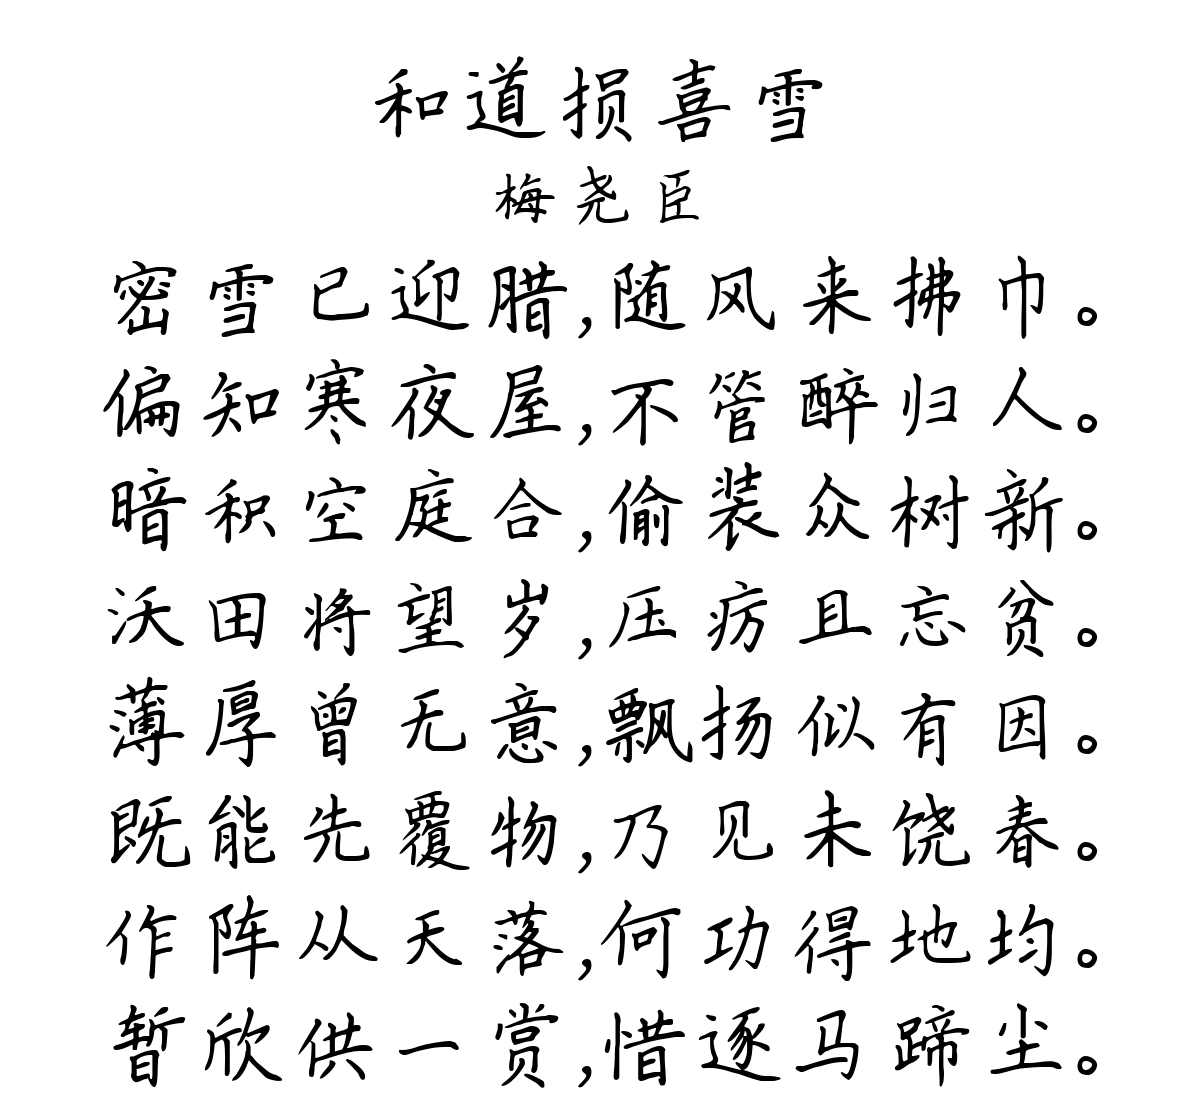 和道损喜雪
梅尧臣
密雪已迎腊,随风来拂巾。
偏知寒夜屋,不管醉归人。
暗积空庭合,偷装众树新。
沃田将望岁,压疠且忘贫。
薄厚曾无意,飘扬似有因。
既能先覆物,乃见未饶春。
作阵从天落,何功得地均。
暂欣供一赏,惜逐马蹄尘。